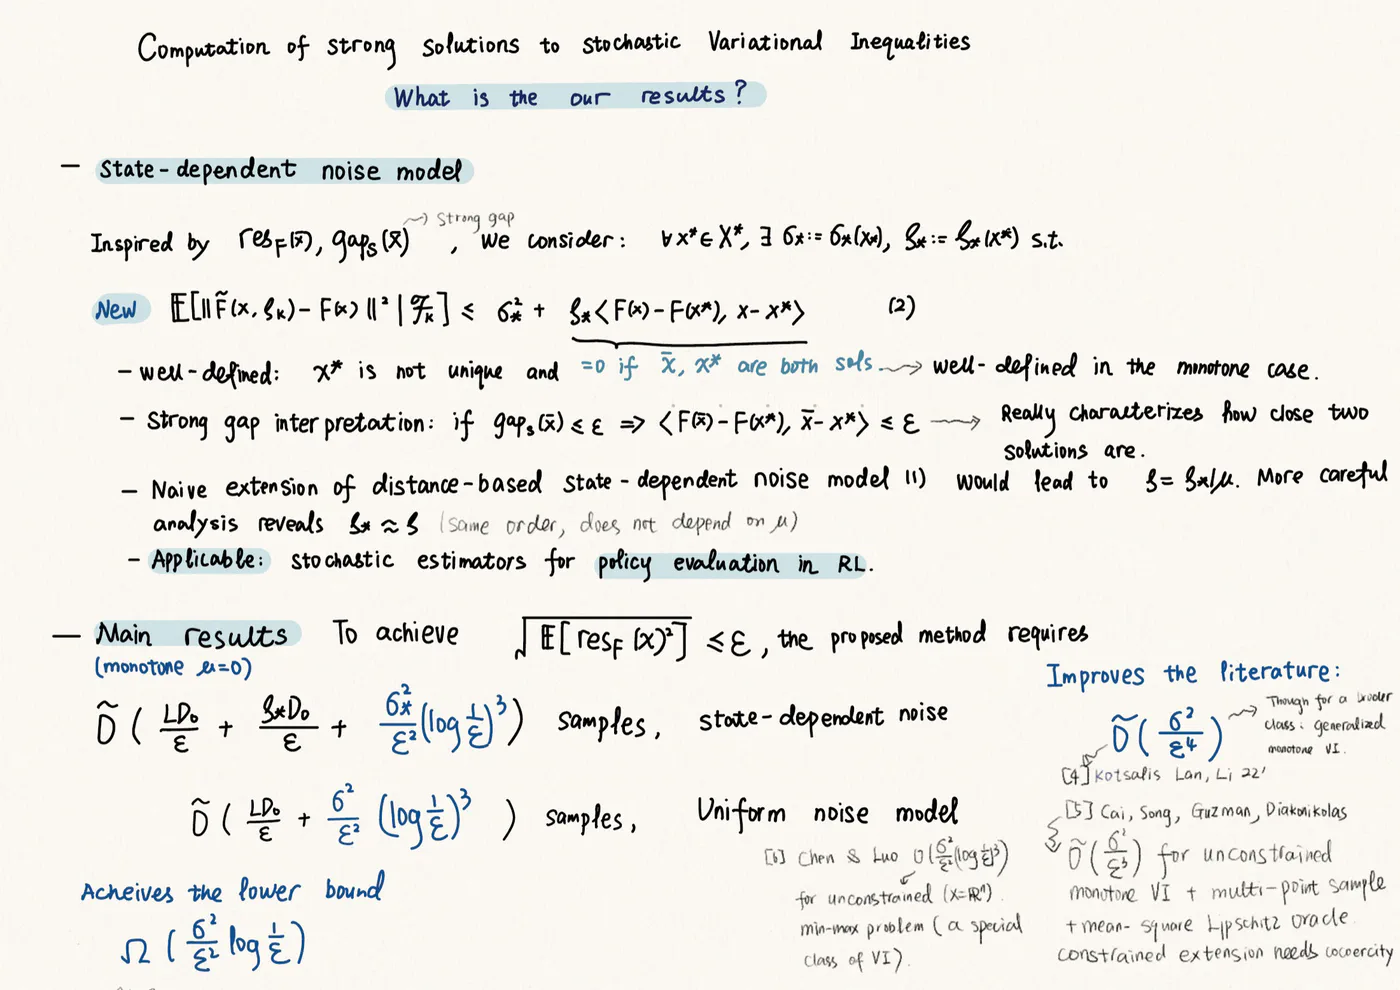 Computation of strong solutions to stochastic Variational Inequalities
What is the our results?
— State-dependent noise model
~> Strong gap
Inspired by res_F(x̄), gap_s(x̄), we consider: ∀x*∈X*, ∃ σ* := σ*(x*), ς* := ς*(x*) s.t.
New 𝔼[‖F̃(x, ξ_k) - F(x)‖² | ℱ_k] ≤ σ*² + ς*<F(x) - F(x*), x - x*> (2)
- well-defined: x* is not unique and =0 if x̄, x* are both sols ~> well-defined in the monotone case.
- Strong gap interpretation: if gap_s(x̄) ≤ ε => <F(x̄) - F(x*), x̄ - x*> ≤ ε ~> Really characterizes how close two
solutions are.
- Naive extension of distance-based state-dependent noise model (1) would lead to ς = ς*/μ. More careful
analysis reveals ς* ≈ ς (same order, does not depend on μ)
- Applicable: stochastic estimators for policy evaluation in RL.
— Main results To achieve √𝔼[res_F(x)²] ≤ ε, the proposed method requires
(monotone μ=0)
Õ( LD₀/ε + ς*D₀/ε + σ*²/ε² (log 1/ε)³ ) samples, state-dependent noise
Õ( LD₀/ε + σ²/ε² (log 1/ε)³ ) samples, Uniform noise model
Acheives the lower bound
Ω( σ²/ε² log 1/ε )
[6] Chen & Luo O(σ²/ε² (log 1/ε)³)
for unconstrained (X=ℝⁿ)
min-max problem (a special
class of VI).
Improves the literature:
Õ( σ²/ε⁴ ) ~> Though for a broder
class: generalized
monotone VI.
[4] Kotsalis Lan, Li 22'
[5] Cai, Song, Guzman, Diakonikolas
Õ( σ²/ε³ ) for unconstrained
monotone VI + multi-point sample
+ mean-square Lipschitz oracle.
constrained extension needs cocoercity